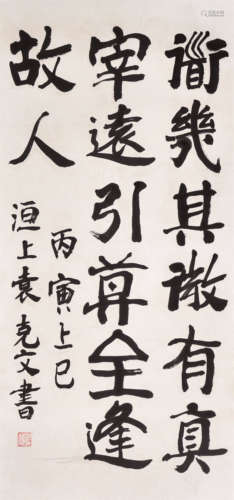 衜幾其微有真
宰遠引尊全逢
故人
丙寅上巳
洹上袁克文書